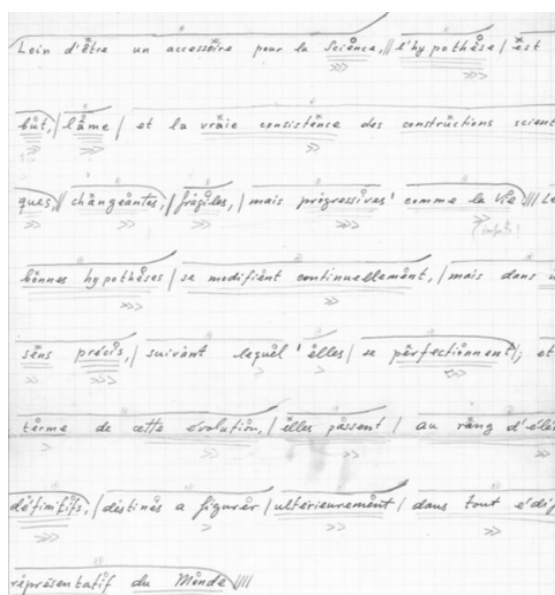 Loin d'être un accessoire pour la Science, // l'hypothèse / est
but, / l'âme / et la vraie consistence des constructions scient
ques, // changeantes, / fragiles, / mais progressives' comme la Vie /// Le
bonnes hypothèses / se modifient continuellement, / mais dans u
sens précis, / suivant lequel ' elles / se perfectionnent / ; et
terme de cette évolution, / elles passent / au rang d'élé
définitifs, / destinés a figurer / ultérieurement / dans tout édif
représentatif du Monde ////